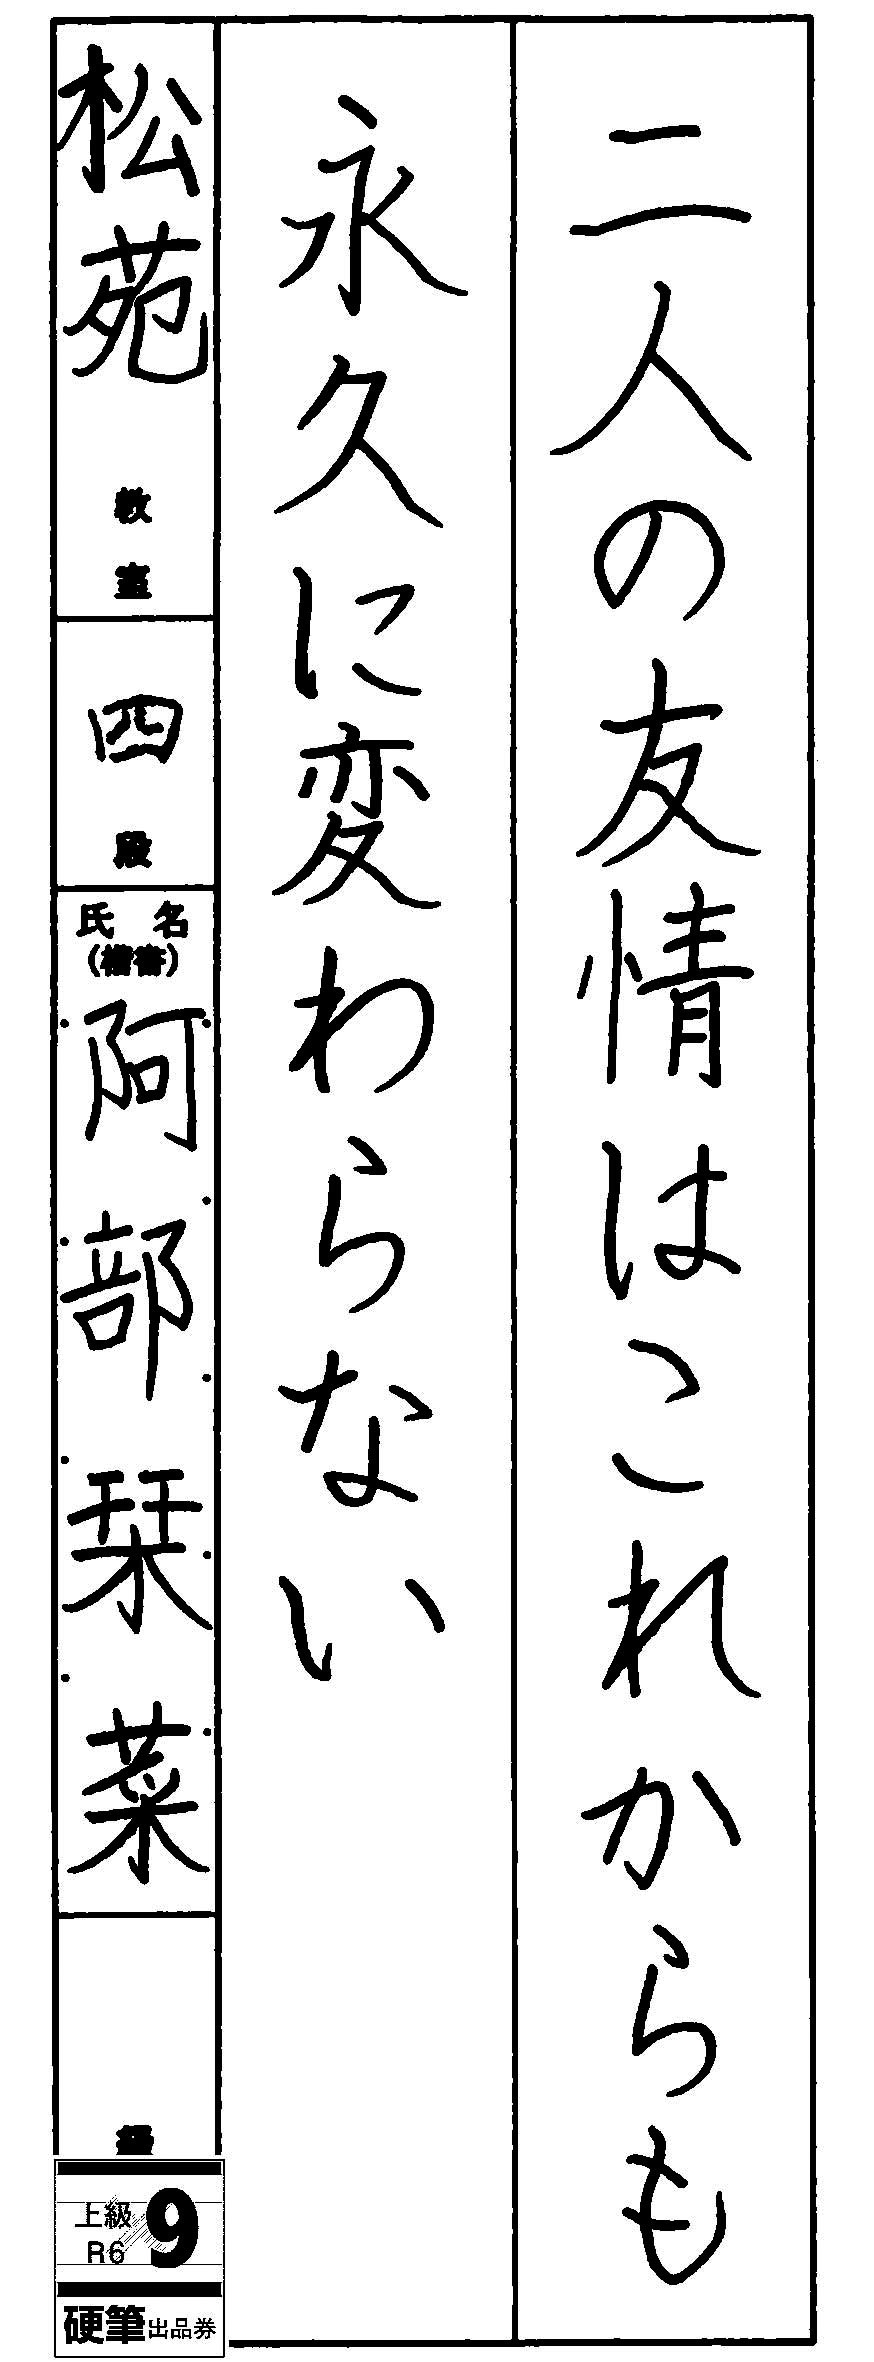 二人の友情はこれからも
永久に変わらない
松苑教室
四段
氏名
(楷書)
阿部栞菜
級
上級
R6
9
硬筆出品券